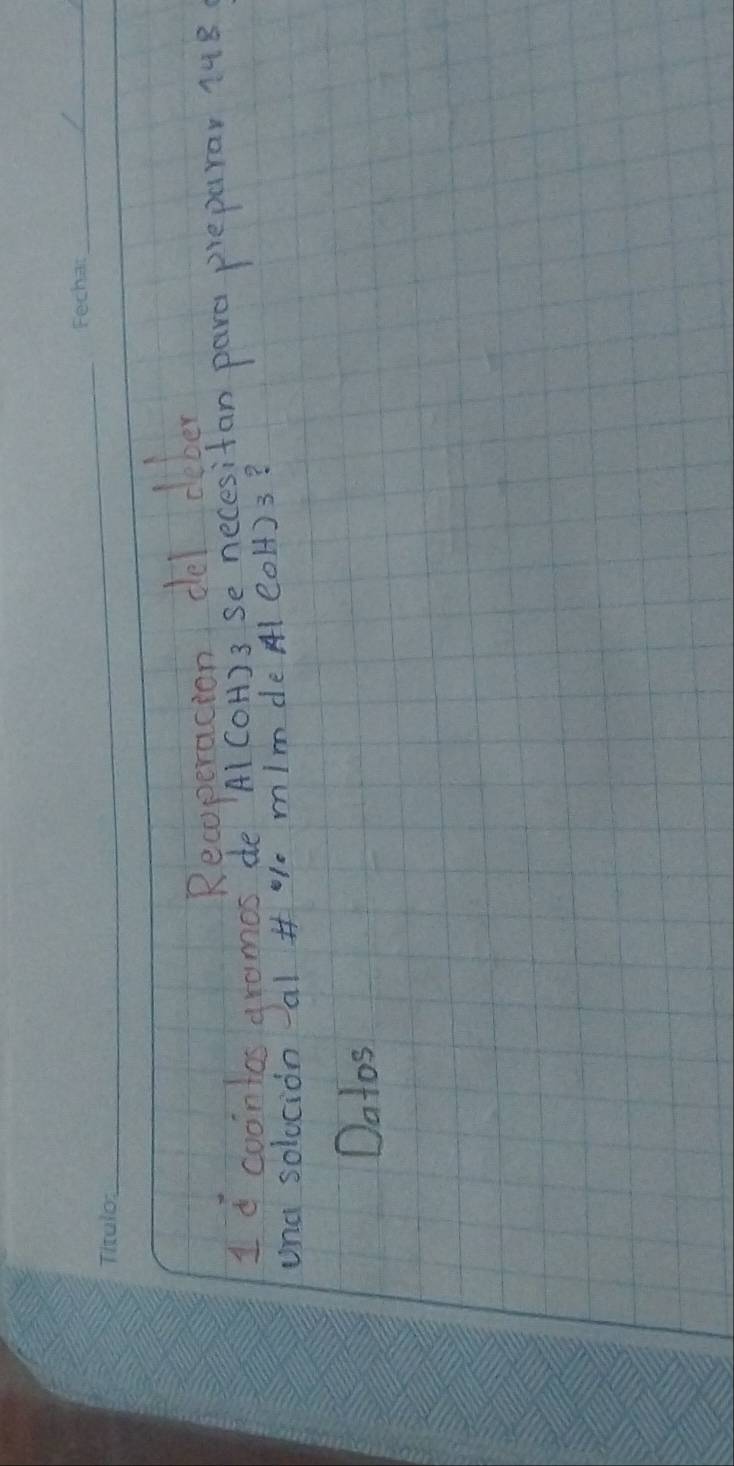 Título: Fecha: / /
Recuperación del deber
1 ¿ cuántos gramos de Al(OH)3 se necesitan para preparar 148
una solución al # % m/m de Al(OH)3?
Datos